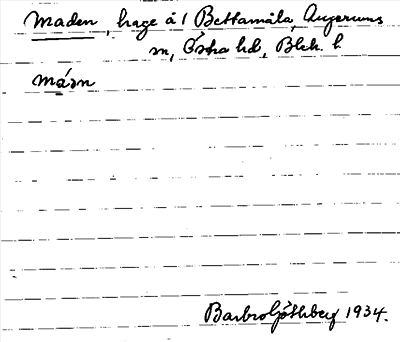 Maden, hage å 1 Bettamåla, Augerums
sn, Östra hd, Blek. l.
másn
Barbro Göthberg 1934.